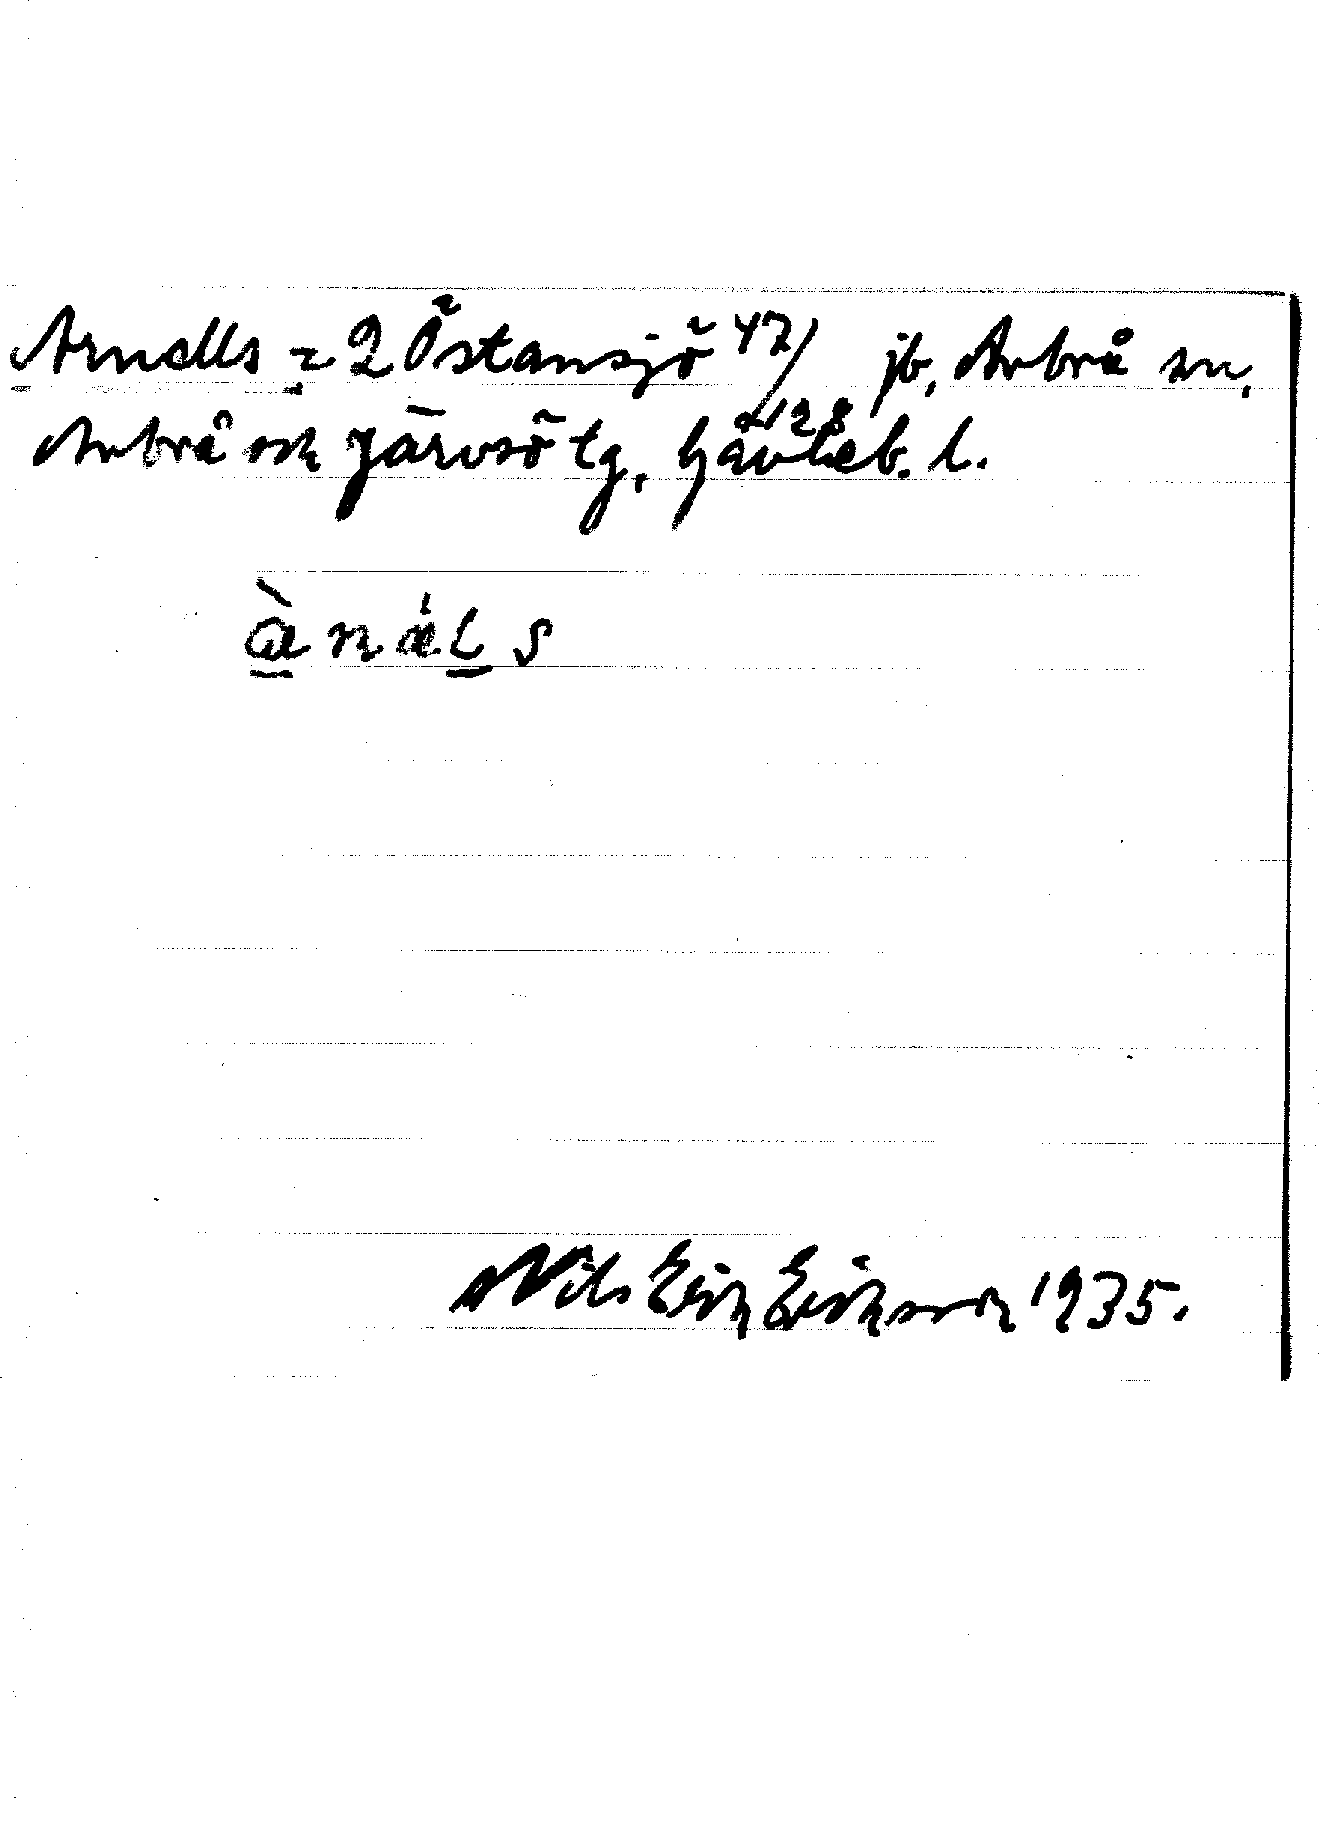 Arnells = 2 Östansjö 47/128 jb, Arbrå sn,
Arbrå och Järvsö tg, Gävleb. l.
ànæ̍ls
Nils Erik Eriksson 1935.